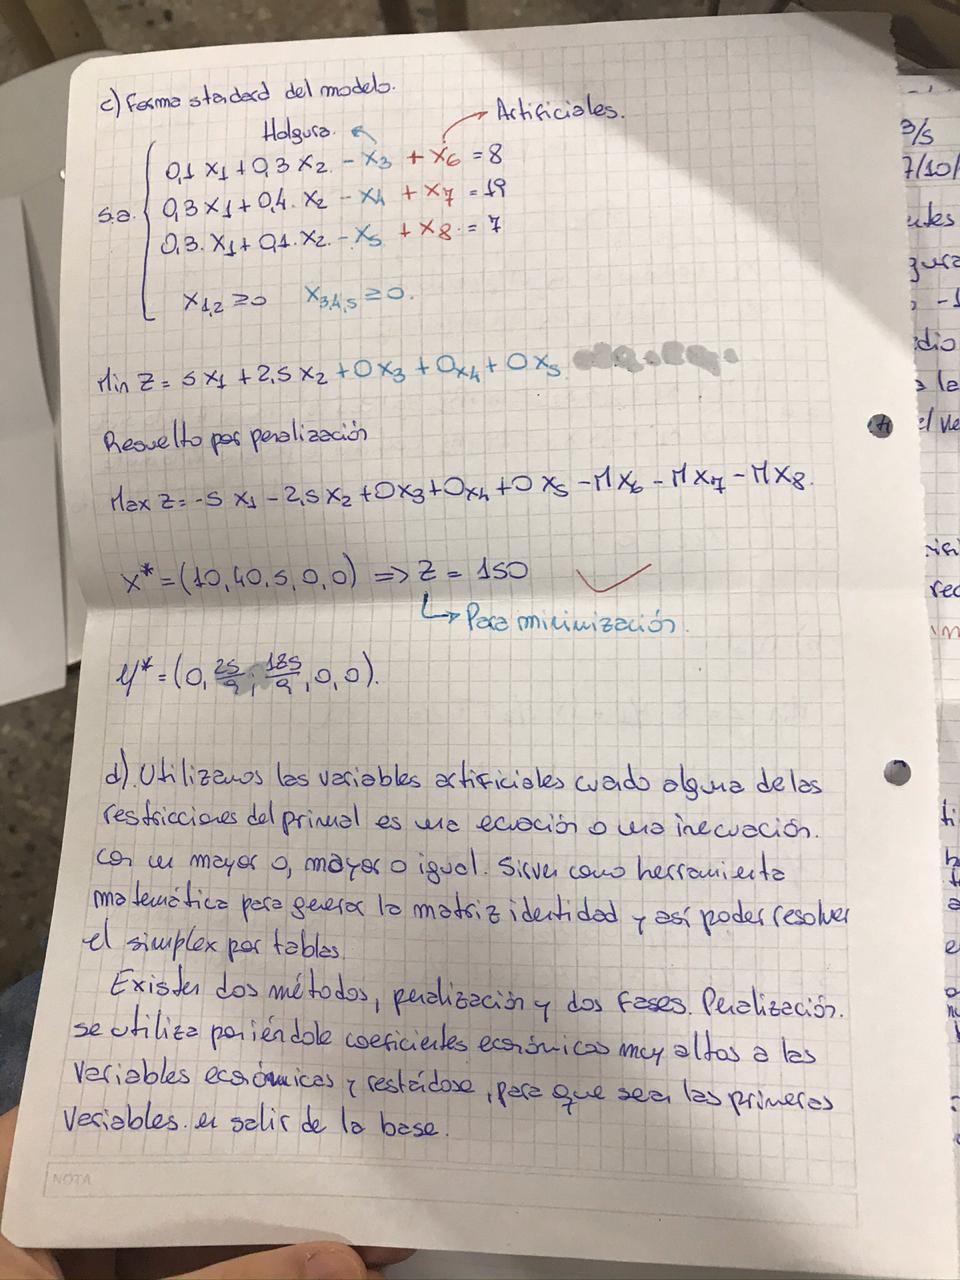 c) Forma standard del modelo.
Holgura. Artificiales.
0,1 x1 + 0,3 x2 - x3 + x6 = 8
s.a. 0,3 x1 + 0,4. x2 - x4 + x7 = 19
0,3. x1 + 0,1. x2. - x5 + x8 = 7
x1,2 ≥ 0 x3,4,5 ≥ 0.
Min Z = 5 x1 + 2,5 x2 + 0x3 + 0x4 + 0x5
Resuelto por penalización
Max Z = -5 x1 - 2,5 x2 + 0x3 + 0x4 + 0 x5 - M x6 - M x7 - M x8.
x* = (10, 40, 5, 0, 0) => Z = 150
Para minimización.
y* = (0, 25/9; 185/9, 0, 0).
d). Utilizamos las variables artificiales cuado alguna de las
restricciones del primal es una ecuación o una inecuación.
con un mayor o, mayor o igual. Sirven como herramienta
matemática para generar la matriz identidad y así poder resolver
el simplex por tablas.
Existen dos métodos, penalización y dos fases. Penalización.
se utiliza poniéndole coeficientes económicos muy altos a las
variables económicas y restádose, para que sean las primeras
variables. en salir de la base.
NOTA
3/s
7/10/